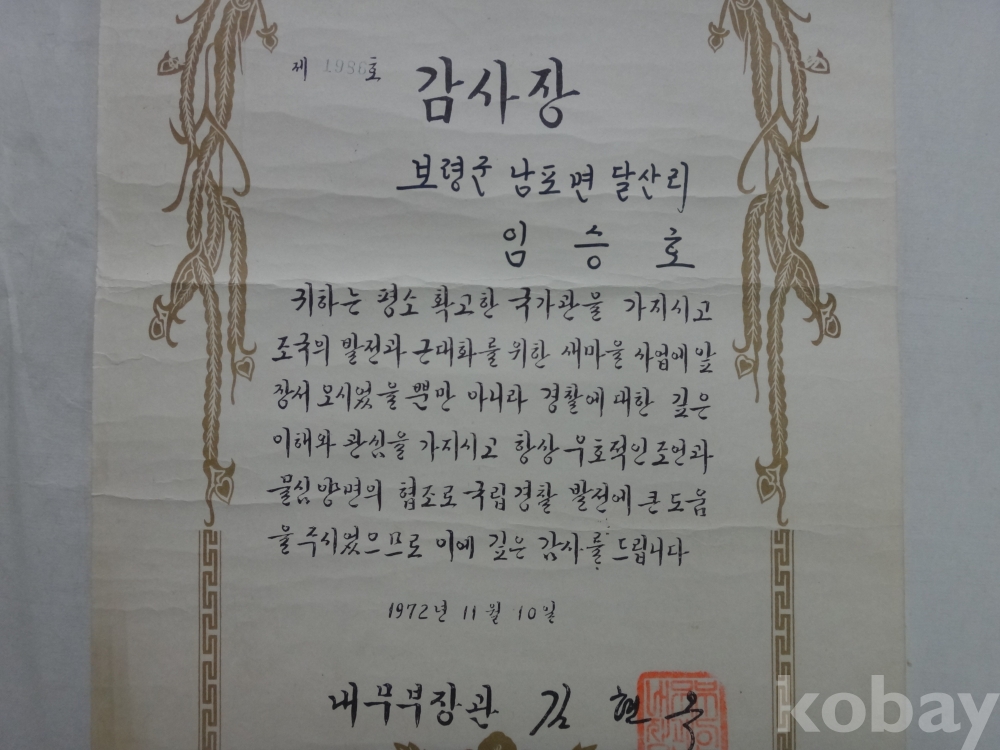 제 1936호
감사장
보령군 남포면 달산리
임 승 호
귀하는 평소 확고한 국가관을 가지시고
조국의 발전과 근대화를 위한 새마을 사업에 앞
장서 오시었을 뿐만 아니라 경찰에 대한 깊은
이해와 관심을 가지시고 항상 우호적인 조언과
물심 양면의 협조로 국립경찰 발전에 큰 도움
을 주시었으므로 이에 깊은 감사를 드립니다
1972년 11월 10일
내무부장관 김 현 옥
kobay